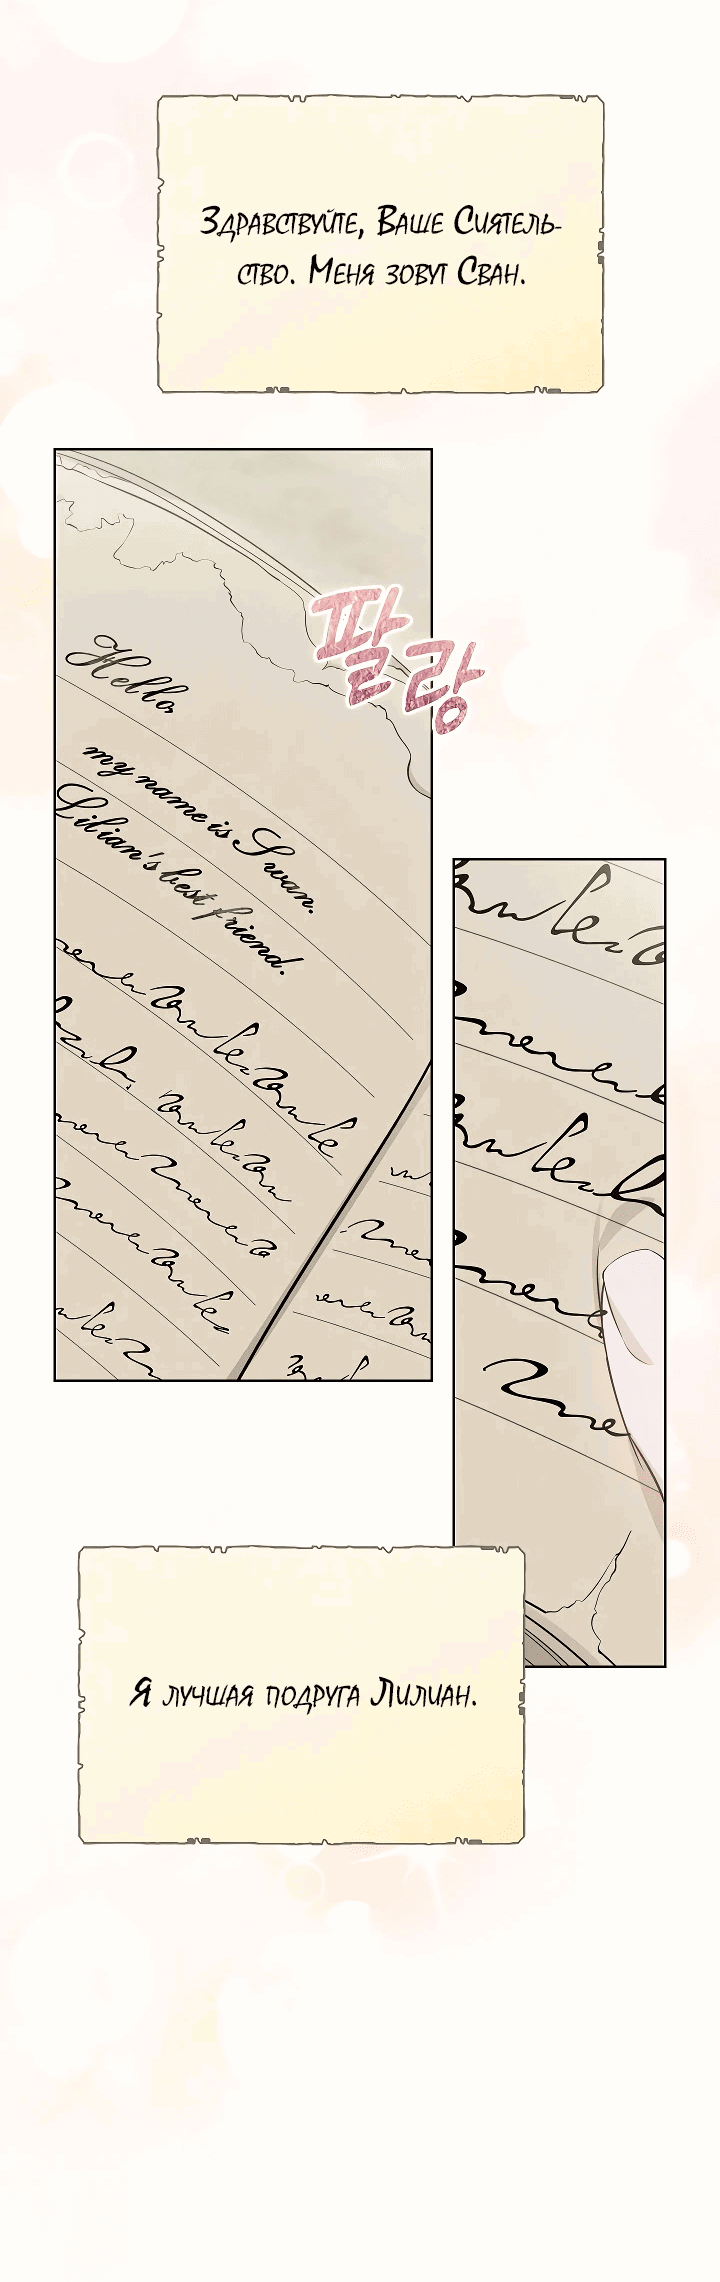 Здравствуйте, Ваше Сиятель-
ство. Меня зовут Сван.
팔랑
Hello,
my name is Swan.
Lilian's best friend.
Я лучшая подруга Лилиан.